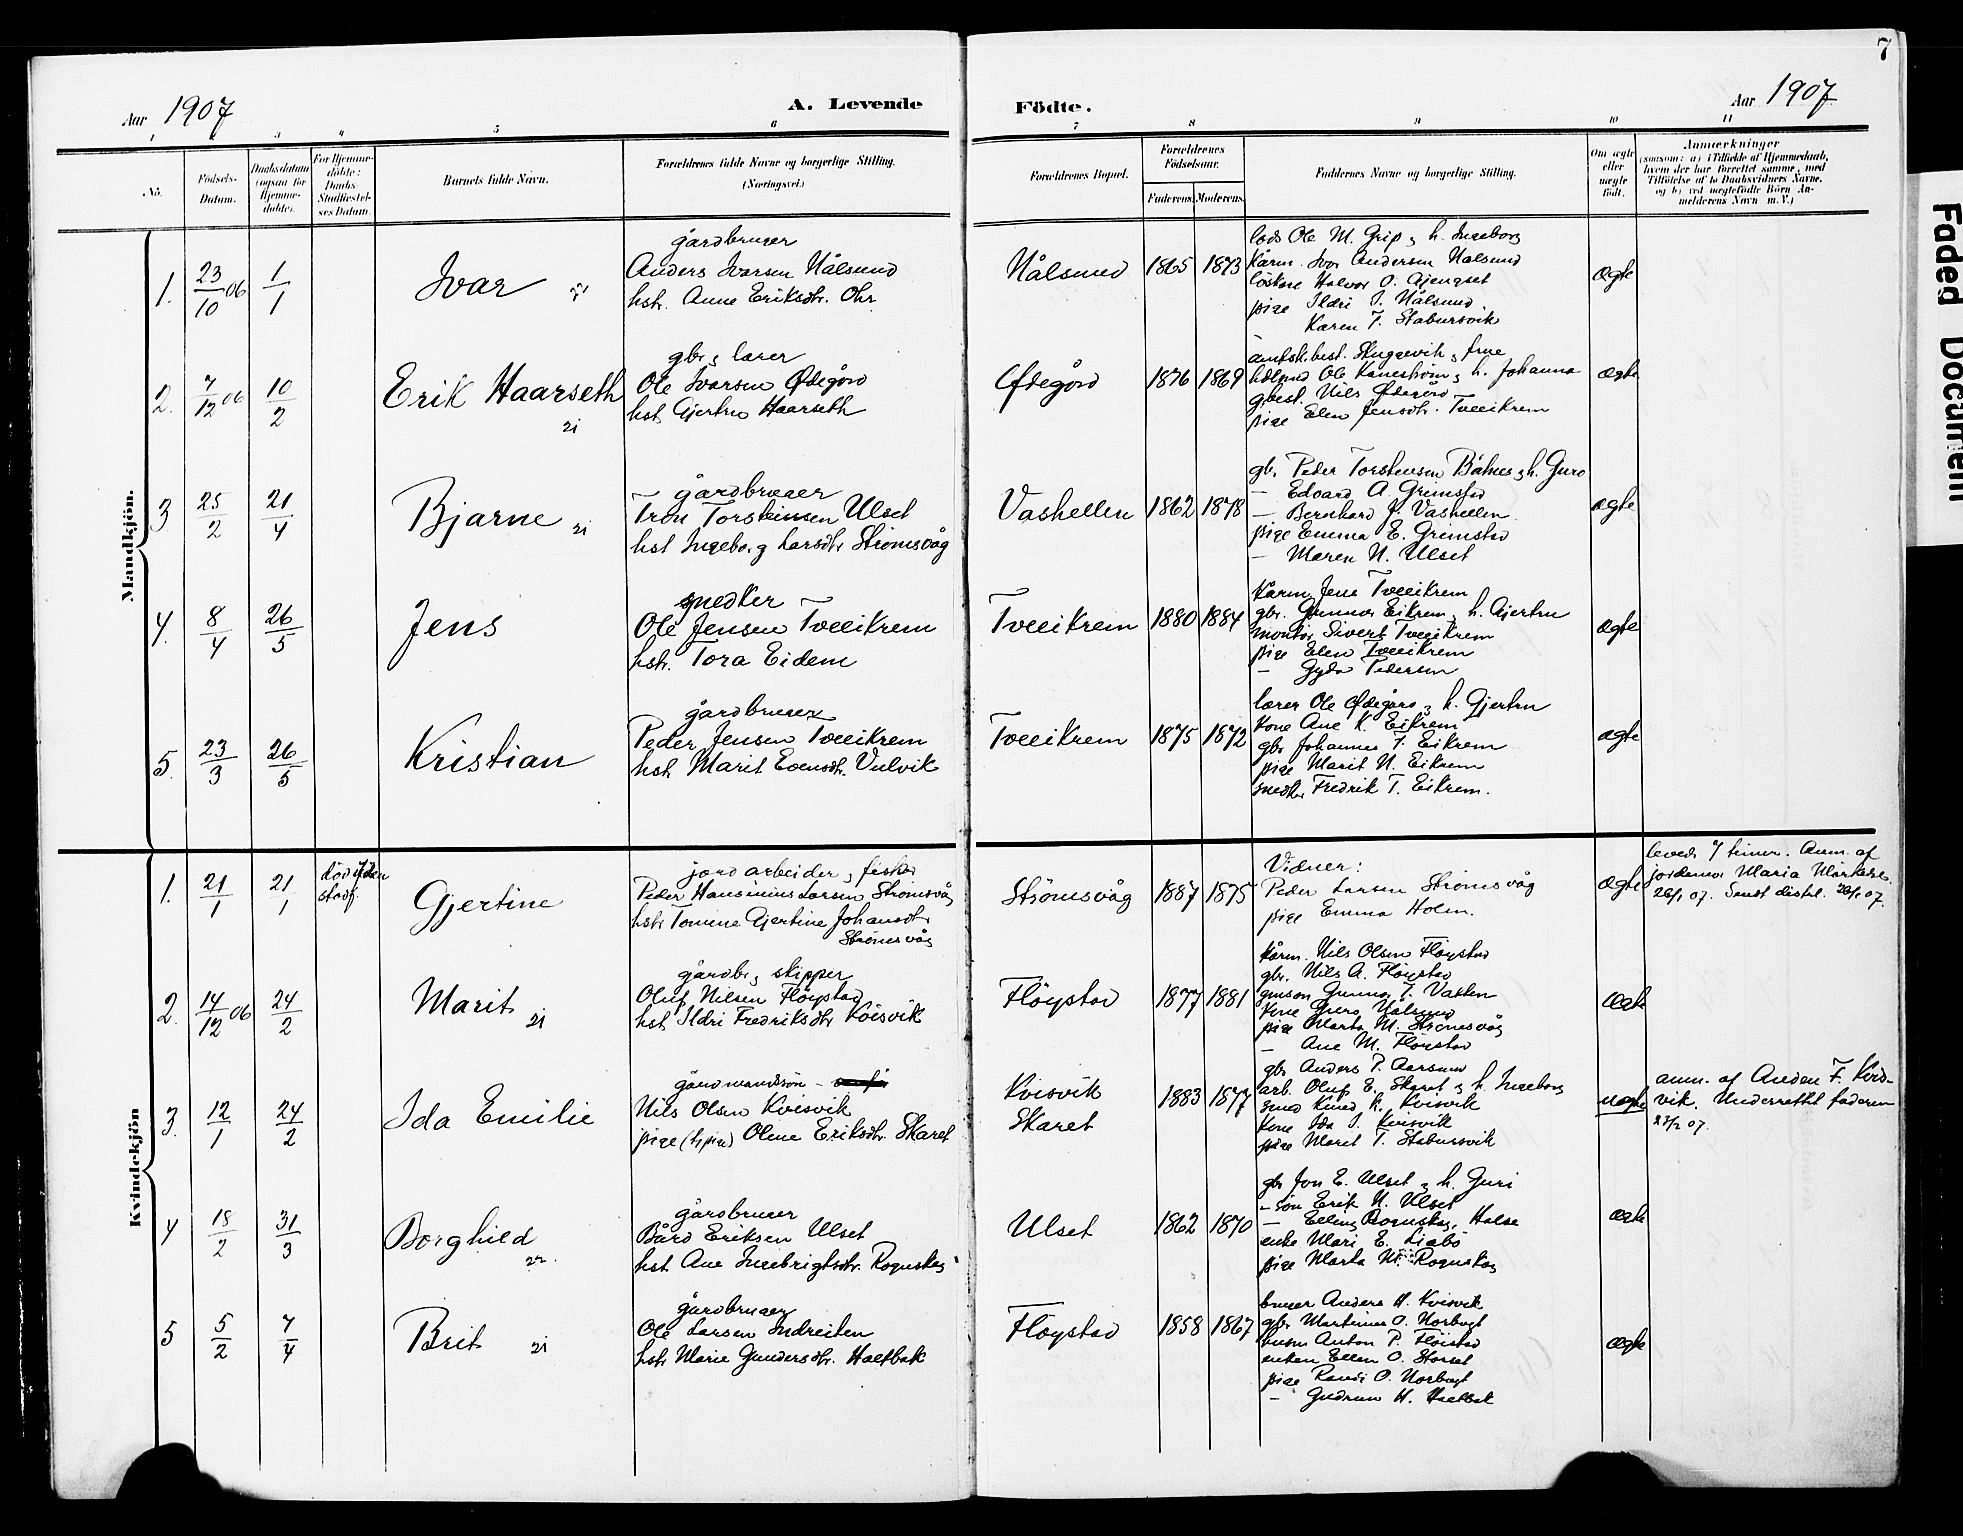 7
Aar 1907
A. Levende
Födte.
Aar 1907
1 3 4 5 6 7 8 9 10 11
No.
Födsels-
Datum.
Daabsdatum
(ogsaa for
Hjemme-
döbte).
For Hjemme-
döbte:
Daabs
Stadfæstel-
ses Datum.
Barnets fulde Navn.
Forældrenes fulde Navne og borgerlige Stilling.
(Næringsvei.)
Forældrenes Bopæl.
Forældrenes
Födselsaar.
Faderens. Moderens.
Faddernes Navne og borgerlige Stilling.
Om ægte
eller
uægte
födt.
Anmærkninger
(saasom: a) i Tilfælde af Hjemmedaab,
hvem der har forrettet samme, med
Tilföielse af to Daabsvidners Navne,
og b) ved uægtefödte Börn An-
melderens Navn m.V.)
Mandkjön.
1. 23/10 06 1/1
Ivar
gårdbruger
Anders Ivarsen Nålsund
hst. Anne Eriksdtr. Ohr
Nålsund 1865 1873
lods Ole M. Grip & h. Ingeborg
kårm. Ivar Andersen Nalsund
løskar Halvor O. Gjengset
pige Ildri I. Nålsund
Karen T. Stabursvik
ægte
2. 7/12 06 10/2
Erik Haarseth
gbr. & lærer
Ole Ivarsen Ødegård
hst. Gjertru Haarseth
Ødegård 1876 1869
amtsk.best. Skuggevik & frue
Ole Kanestrøm & h. Johanna
gbest. Nils Ødegård
pige Elen Jensdtr. Tveeikrem
ægte
3 25/2 21/4
Bjarne
gårdbruger
Tron Torsteinsen Ulset
hst Ingeborg Larsdtr Strømsvåg
Vashellen 1862 1878
gbr. Peder Torstensen Båtnes & h. Guro
— Edvard A. Grimstad
— Bernhard J. Vashellen
pige Emma E. Grimstad
— Maren N. Ulset
ægte
4. 8/4 26/5
Jens
snedker
Ole Jensen Tveeikrem
hst. Tora Eidem
Tveeikrem 1880 1884
kårm Jens Tveeikrem
gbr. Gunnar Eikrem & h. Gjertru
montør Sivert Tveeikrem
pige Elen Tveeikrem
— Gyda Pedersen
ægte
5. 23/3 26/5
Kristian
gårdbruger
Peder Jensen Tveeikrem
hst. Marit Evensdtr. Vulvik
Tveeikrem 1875 1872
lærer Ole Ødegård & h. Gjertru
kone Ane K. Eikrem
gbr Johannes T. Eikrem
pige Marit N. Eikrem
snedker Fredrik T. Eikrem.
ægte
Kvindekjön
1. 21/1 21/1 død uden stadf.
Gjertine
jordarbeider & fisker
Peder Hansinius Larsen Strømsvåg
hst. Tomine Gjertine Johansdtr
Strømsvåg
Strømsvåg 1887 1875
Vidner:
Peder Larsen Strømsvåg
pige Emma Holm.
ægte
levede 7 timer. Anm. af
jordemor Maria
26/1 07. Sendt distrl. 26/1 07.
2. 14/12 06 24/2
Marit
gårdbr & skipper
Oluf Nilsen Fløystad
hst. Ildri Fredriksdtr Koisvik
Fløystad 1877 1881
kårm. Nils Olsen Fløystad
gbr. Nils A. Fløystad
Gunnar T. Vatten
kone Guro Nålsund
pige Marta M. Strømsvåg
— Ane M. Fløystad
ægte
3. 12/1 24/2
Ida Emilie
gårdmandsøn
Nils Olsen Kvisvik
pige Oline Eriksdtr. Skaret
Kvisvik
Skaret
1883 1877
gbr Anders P. Aarsund
arb. Oluf E. Skaret & h. Ingeborg
smed Knud K. Kvisvik
kone Ida J. Kvisvik
pige Marit T. Stabursvik
uægte
anm. af Anden F. Kvis-
vik. Underrettet faderen
23/2 07.
4 18/2 31/3
Borghild
gårdbruger
Bård Eriksen Ulset
hst Ane Ingebrigtsdtr. Rognskog
Ulset 1862 1870
gbr Jon E. Ulset & h. Guri
— søn Erik N. Ulset
— Elling Rognskog, Halse
enke Mari E. Liabø
pige Marta M. Rognskog
ægte
5 5/2 7/4
Brit
gårdbruger
Ole Larsen Indreiten
hst. Marie Gundersdtr. Holtbak
Fløystad 1858 1867
bruger Anders H. Kvisvik
gbr Martinus O. Norbøgt
Anton P. Fløistad
enken Ellen O. Storset
pige Randi O. Norbøgt
— Gudrun H. Holtbak
ægte
Faded Document